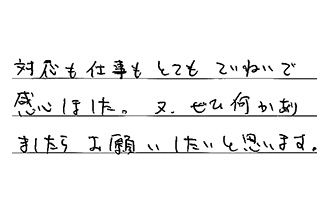 対応も仕事もとてもていねいで
感心しました。又、ぜひ何かあり
ましたらお願いしたいと思います。